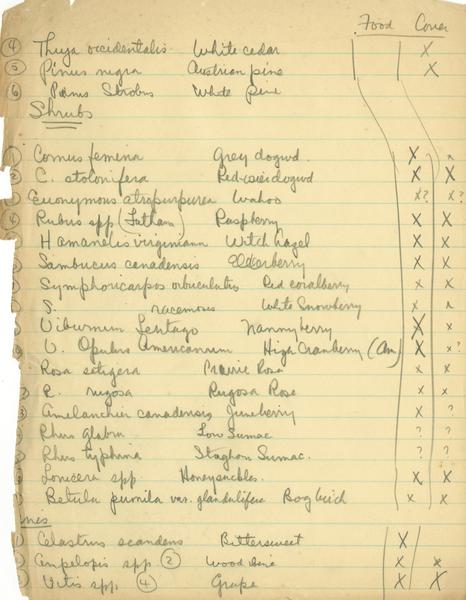 Food Cover
④ Thuya occidentalis White cedar x
⑤ Pinus nigra Austrian pine x
⑥ Pinus Strobus White pine
Shrubs
Cornus femina Grey dogwd. x x
C. stolonifera Red-osier dogwd x x
Euonymous atropurpurea Wahoo x? x?
Rubus spp (Latham) Raspberry x x
Hamamelis virginiana Witch hazel x x
Sambucus canadensis Elderberry x x
Symphoricarpos orbiculatus Red coralberry x x
S. racemosus White Snowberry x x
Viburnum Lentago Nannyberry x x
V. Opulus Americanum High Cranberry (Am) x x?
Rosa setigera Prairie Rose x x
R. rugosa Rugosa Rose x x
Amelanchier canadensis Juneberry x ?
Rhus glabra Low Sumac ? ?
Rhus typhina Staghorn Sumac. ? ?
Lonicera spp Honeysuckles. x x
Betula pumila var. glandulifera Bog birch x x
ines
Celastrus scandens Bittersweet x
Ampelopsis spp ② Woodbine x x
Vitis spp. ④ Grape x x